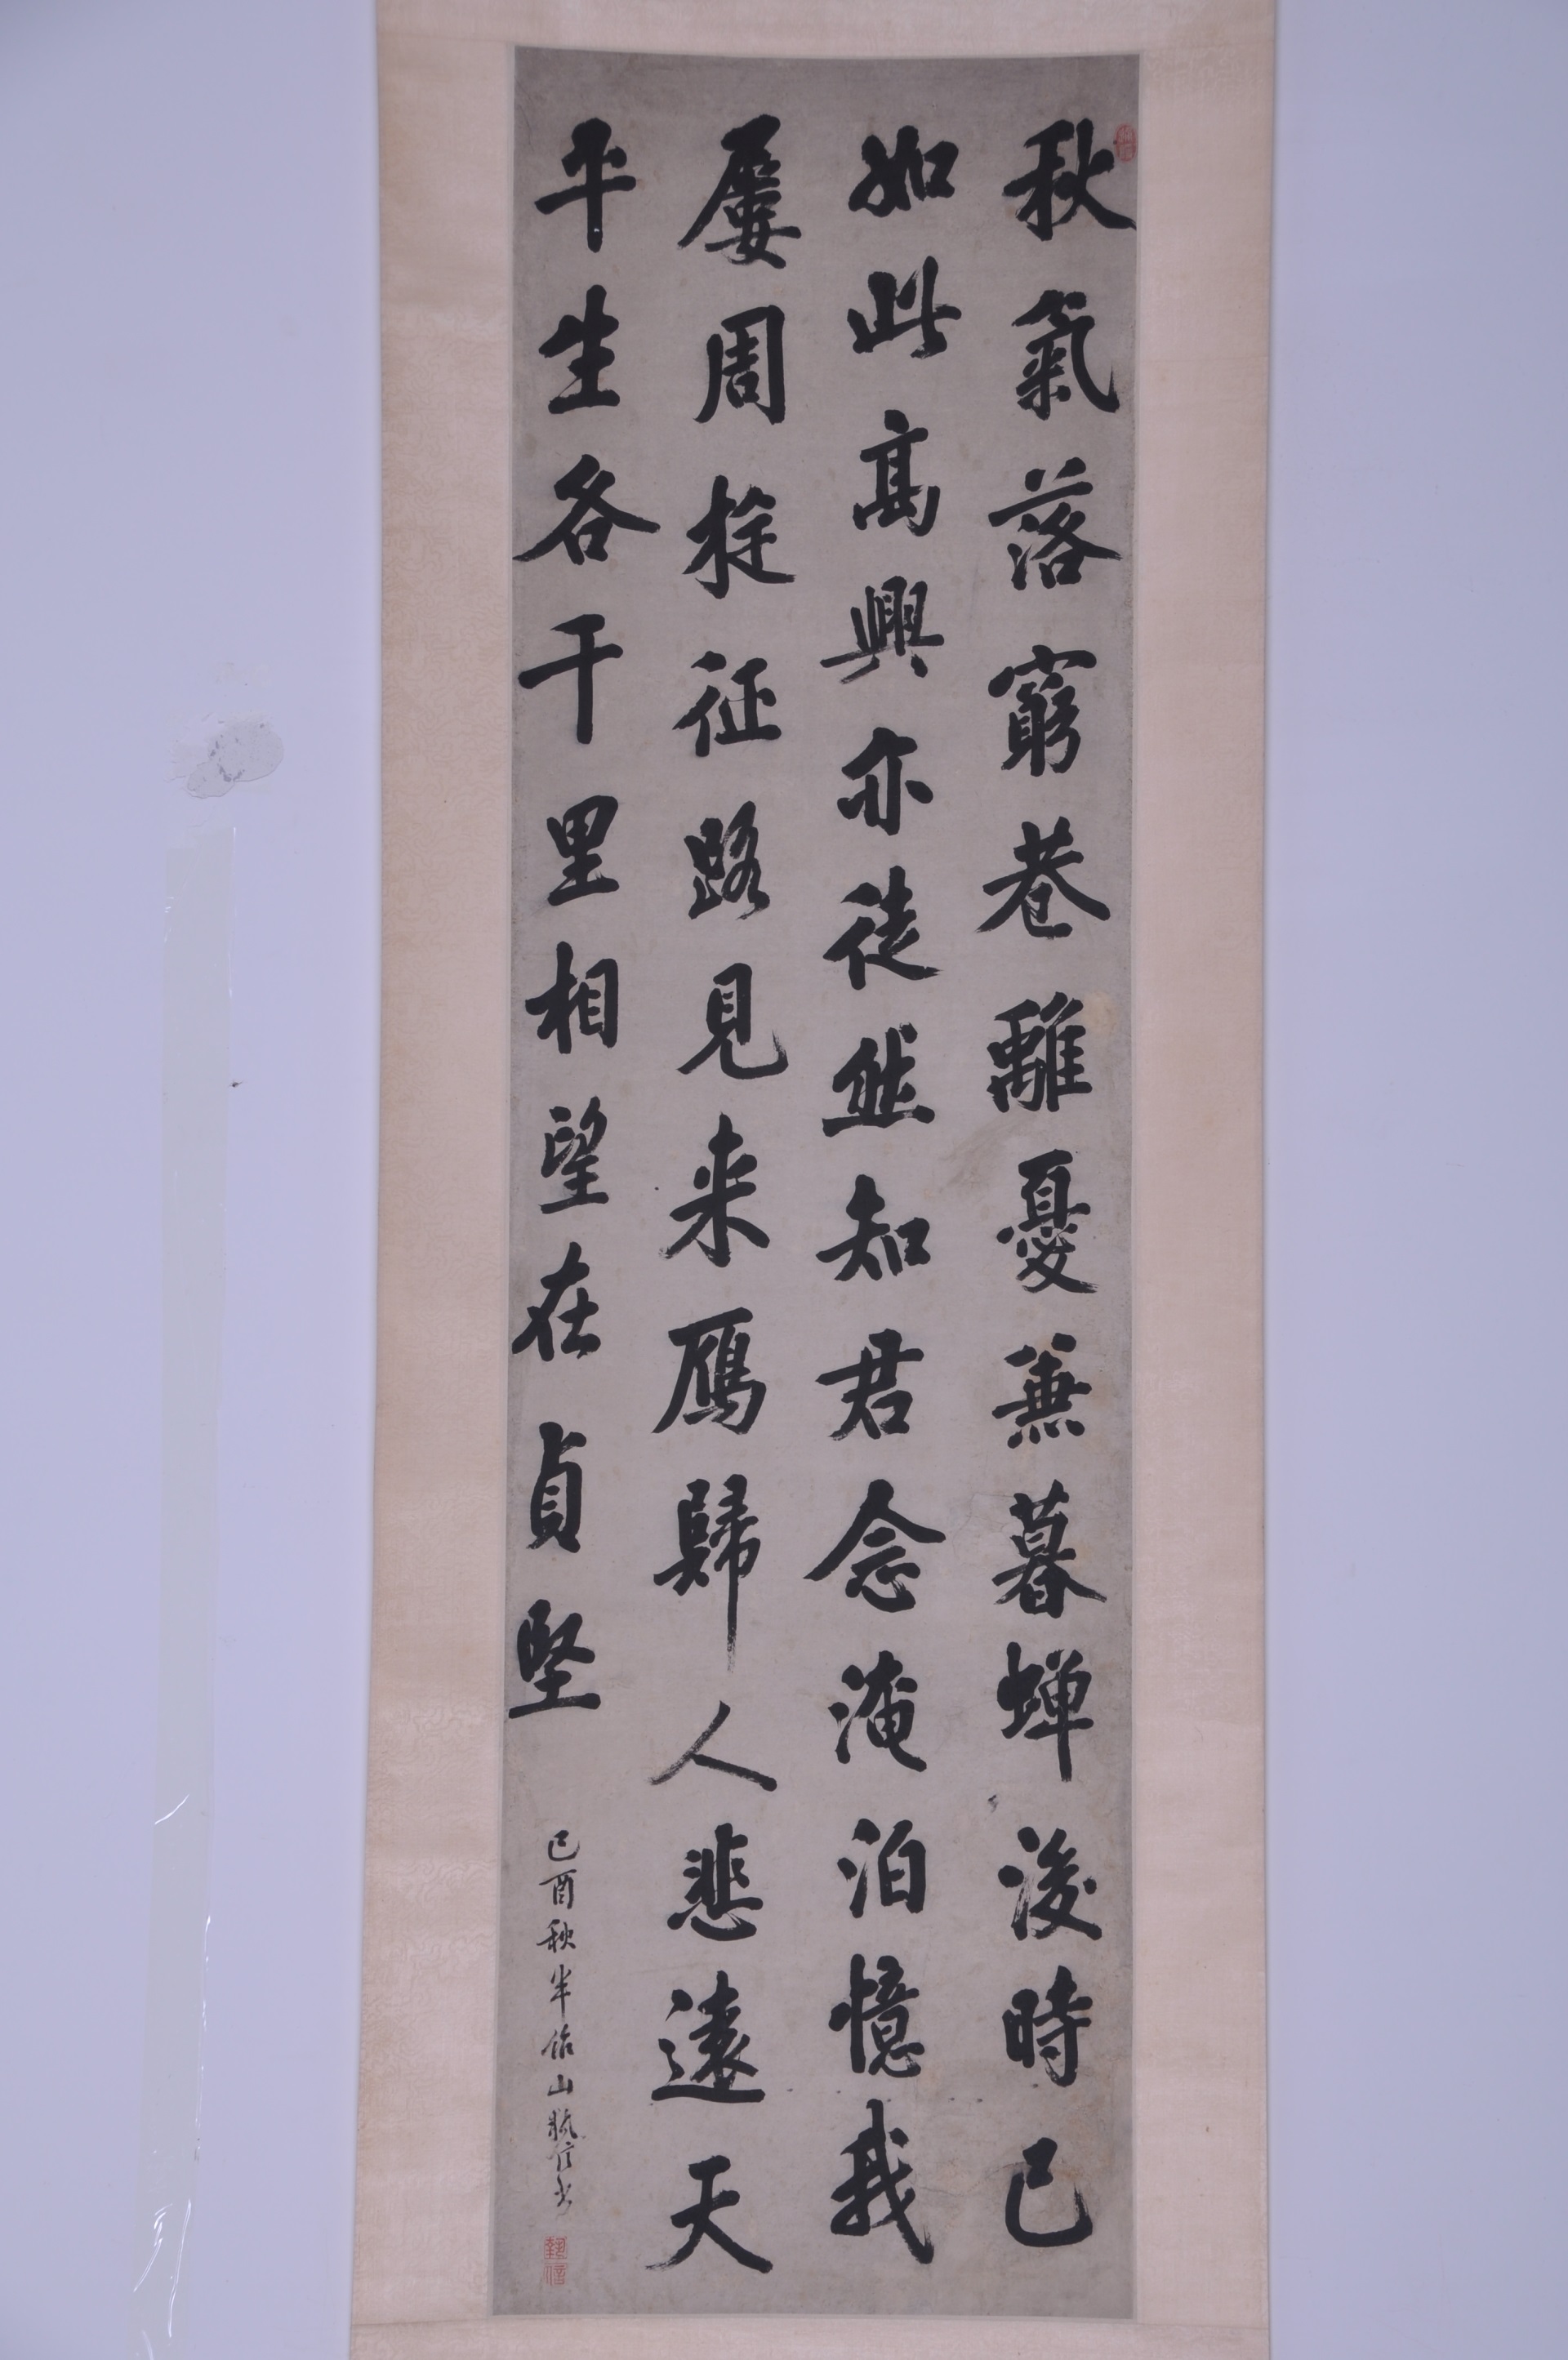 秋氣落窮巷離憂兼暮蟬後時已
如此高興亦徒然知君念淹泊憶我
屢周旋征路見来鴈歸人悲遠天
平生各千里相望在貞堅
己酉秋半飴山執信書
執信